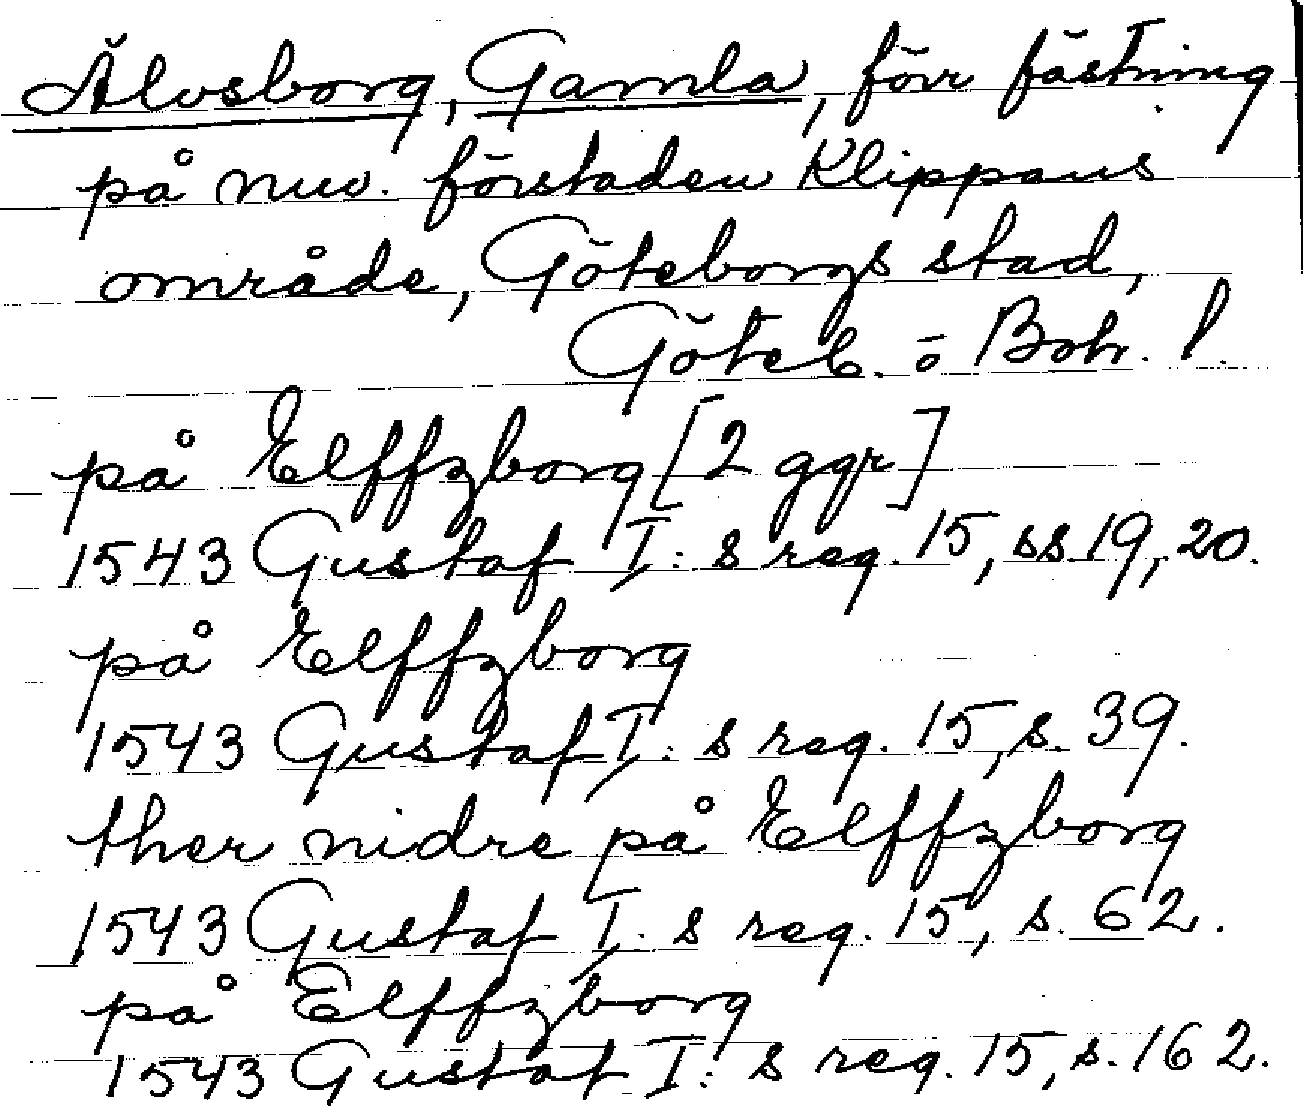 Älvsborg, Gamla, förr fästning
på nuv. förstaden Klippans
område, Göteborgs stad,
Göteb. o Boh. l.
på Elffzborg [2 ggr]
1543 Gustaf I: s reg. 15, ss. 19, 20.
på Elffzborg
1543 Gustaf I: s reg. 15, s. 39.
ther nidre på Elffzborg
1543 Gustaf I: s reg. 15, s. 62.
på Elffzborg
1543 Gustaf I: s reg. 15, s. 162.